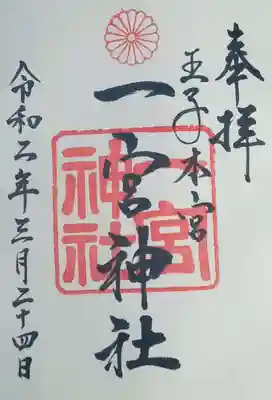 奉拝
王子本宮
一宮神社
一宮神社
令和二年三月二十四日